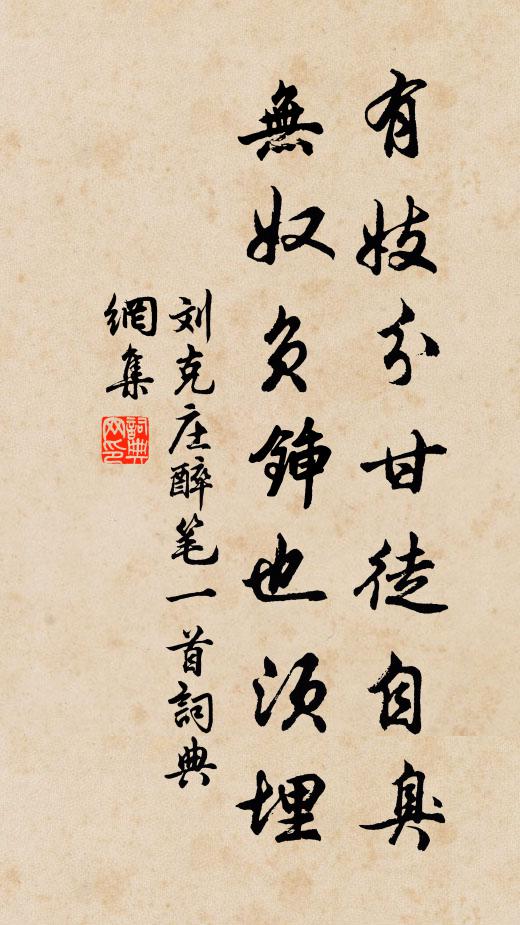 有妓分甘徒自臭
無奴負鍤也須埋
刘克庄醉笔一首詞典
網集
詞典网印